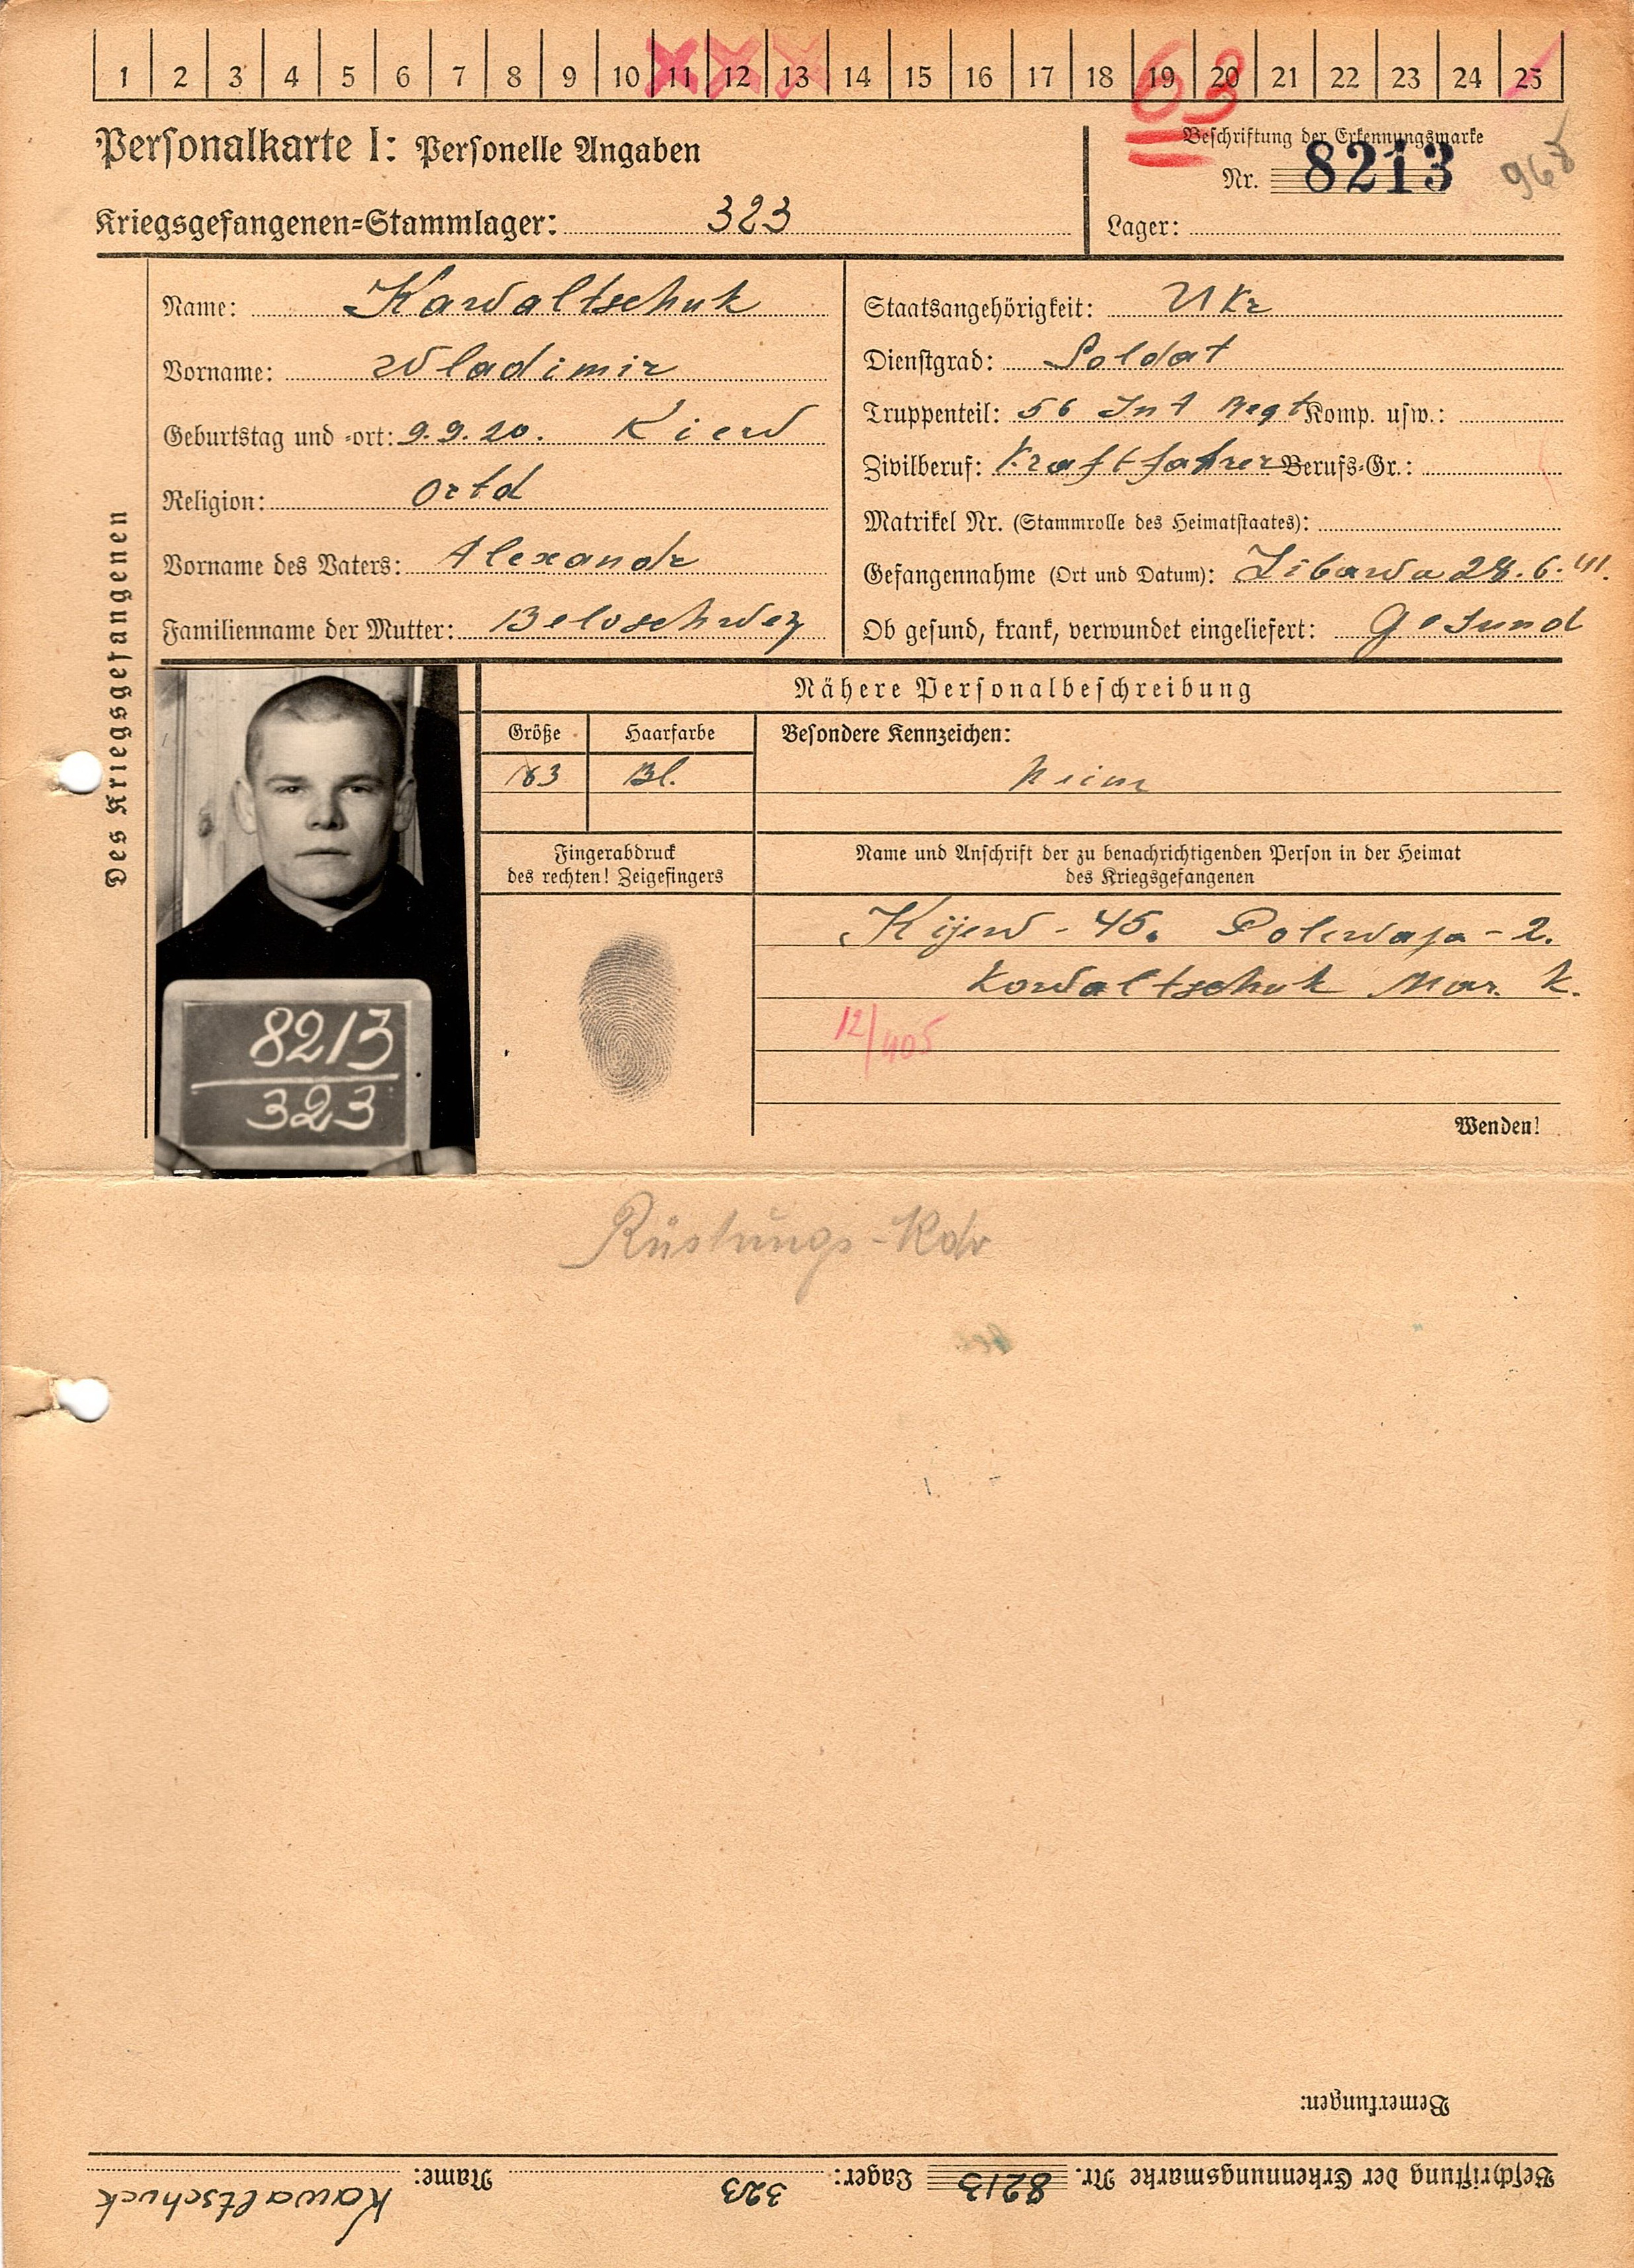 1 2 3 4 5 6 7 8 9 10 11 12 13 14 15 16 17 18 19 20 21 22 23 24 25
63
Personalkarte I: Personelle Angaben
Beschriftung der Erkennungsmarke
Nr. 8213
968
Kriegsgefangenen=Stammlager: 323
Lager:
Des Kriegsgefangenen
Name: Kawaltschuk
Vorname: Wladimir
Geburtstag und =ort: 9.9.20. Kiew
Religion: Ortd
Vorname des Vaters: Alexandr
Familienname der Mutter: Beloschwez
Staatsangehörigkeit: Ukr
Dienstgrad: Soldat
Truppenteil: 56 Inf Regt Komp. usw.:
Zivilberuf: Kraftfahrer Berufs=Gr.:
Matrikel Nr. (Stammrolle des Heimatstaates):
Gefangennahme (Ort und Datum): Libawa 28.6.41.
Ob gesund, krank, verwundet eingeliefert: Gesund
8213
323
Nähere Personalbeschreibung
Größe Haarfarbe Besondere Kennzeichen:
163 Bl.
Fingerabdruck
des rechten! Zeigefingers
Name und Anschrift der zu benachrichtigenden Person in der Heimat
des Kriegsgefangenen
Kijew - 45. Polewaja - 2.
Kowaltschuk Mar. K.
12/405
Wenden!
Rüstungs-Kdo
Bemerkungen:
Beschriftung der Erkennungsmarke Nr. 8213 Lager: 323 Name: Kawaltschuck